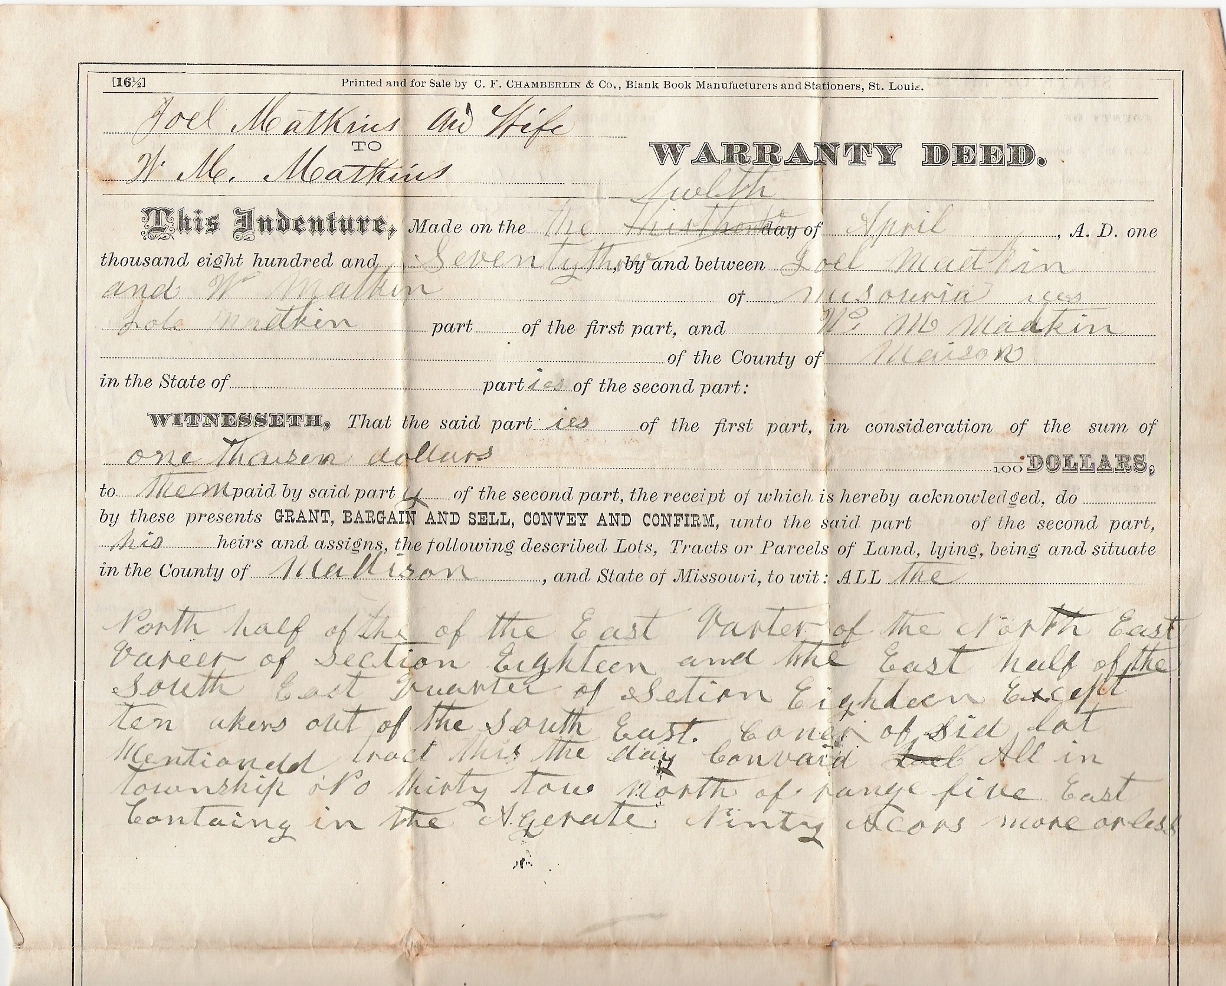 [16½] Printed and for Sale by C. F. CHAMBERLIN & Co., Blank Book Manufacturers and Stationers, St. Louis.
Joel Matkins And Wife
TO
W M. Matkins
WARRANTY DEED.
twelth
This Indenture, Made on the the day of April, A. D. one
thousand eight hundred and Seventy three, by and between Joel Madkin
and W Matkin of misouria
Madkin part of the first part, and Wm M Madkin
of the County of Maison
in the State of parties of the second part:
WITNESSETH, That the said part ies of the first part, in consideration of the sum of
one thousen dollars 100 DOLLARS,
to them paid by said part y of the second part, the receipt of which is hereby acknowledged, do
by these presents GRANT, BARGAIN AND SELL, CONVEY AND CONFIRM, unto the said part of the second part,
his heirs and assigns, the following described Lots, Tracts or Parcels of Land, lying, being and situate
in the County of Madison, and State of Missouri, to wit: ALL the
North half of the of the East Varter of the North East
Vareer of Section Eighteen and the East half of the
South East Quarter of Setion Eighteen Except
ten akers out of the South East. Coner of Sid lot
Mentioned tract this the day Convaid All in
township No thirty tow North of range five East
Containg in the Agerate Ninty Acors more or less